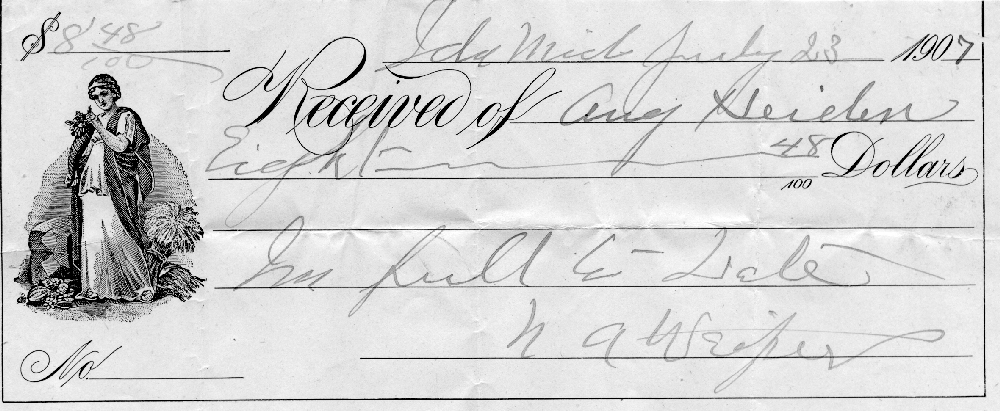 $ 8 48/100
Ida Mich July 23 1907
Received of Aug Heiden
Eight 48/100 Dollars
In full to Date
N A Weipert
No